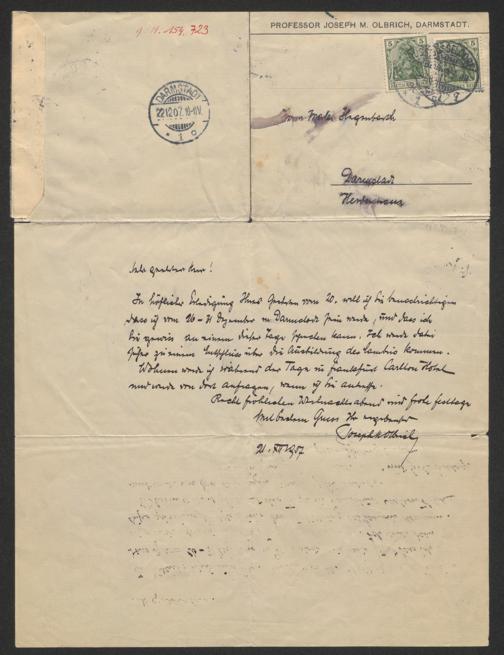 I. N. 154.723
PROFESSOR JOSEPH M. OLBRICH, DARMSTADT.
5 5 5
DARMSTADT
22.12.07. 10-11V.
* 1 0
Herrn Hegenbarth
Darmstadt
Sehr geehrter Herr!
In höflicher Erledigung Ihres Geehrten vom 20. will ich Sie benachrichtigen
dass ich vom 26-31 Dezember in Darmstadt sein werde, und dass ich
Sie gewiss an einem dieser Tage sprechen kann. Ich werde dabei
zu einem Entschluss über die Ausbildung des kommen.
Wohnen werde ich während der Tage in Frankfurt Carlton Hotel
und werde von dort anfragen, wann ich Sie antreffe.
Recht fröhlichen Weihnachtsabend und frohe Festtage
Mit bestem Gruss Ihr ergebenster
Joseph M Olbrich
21. XII 1907